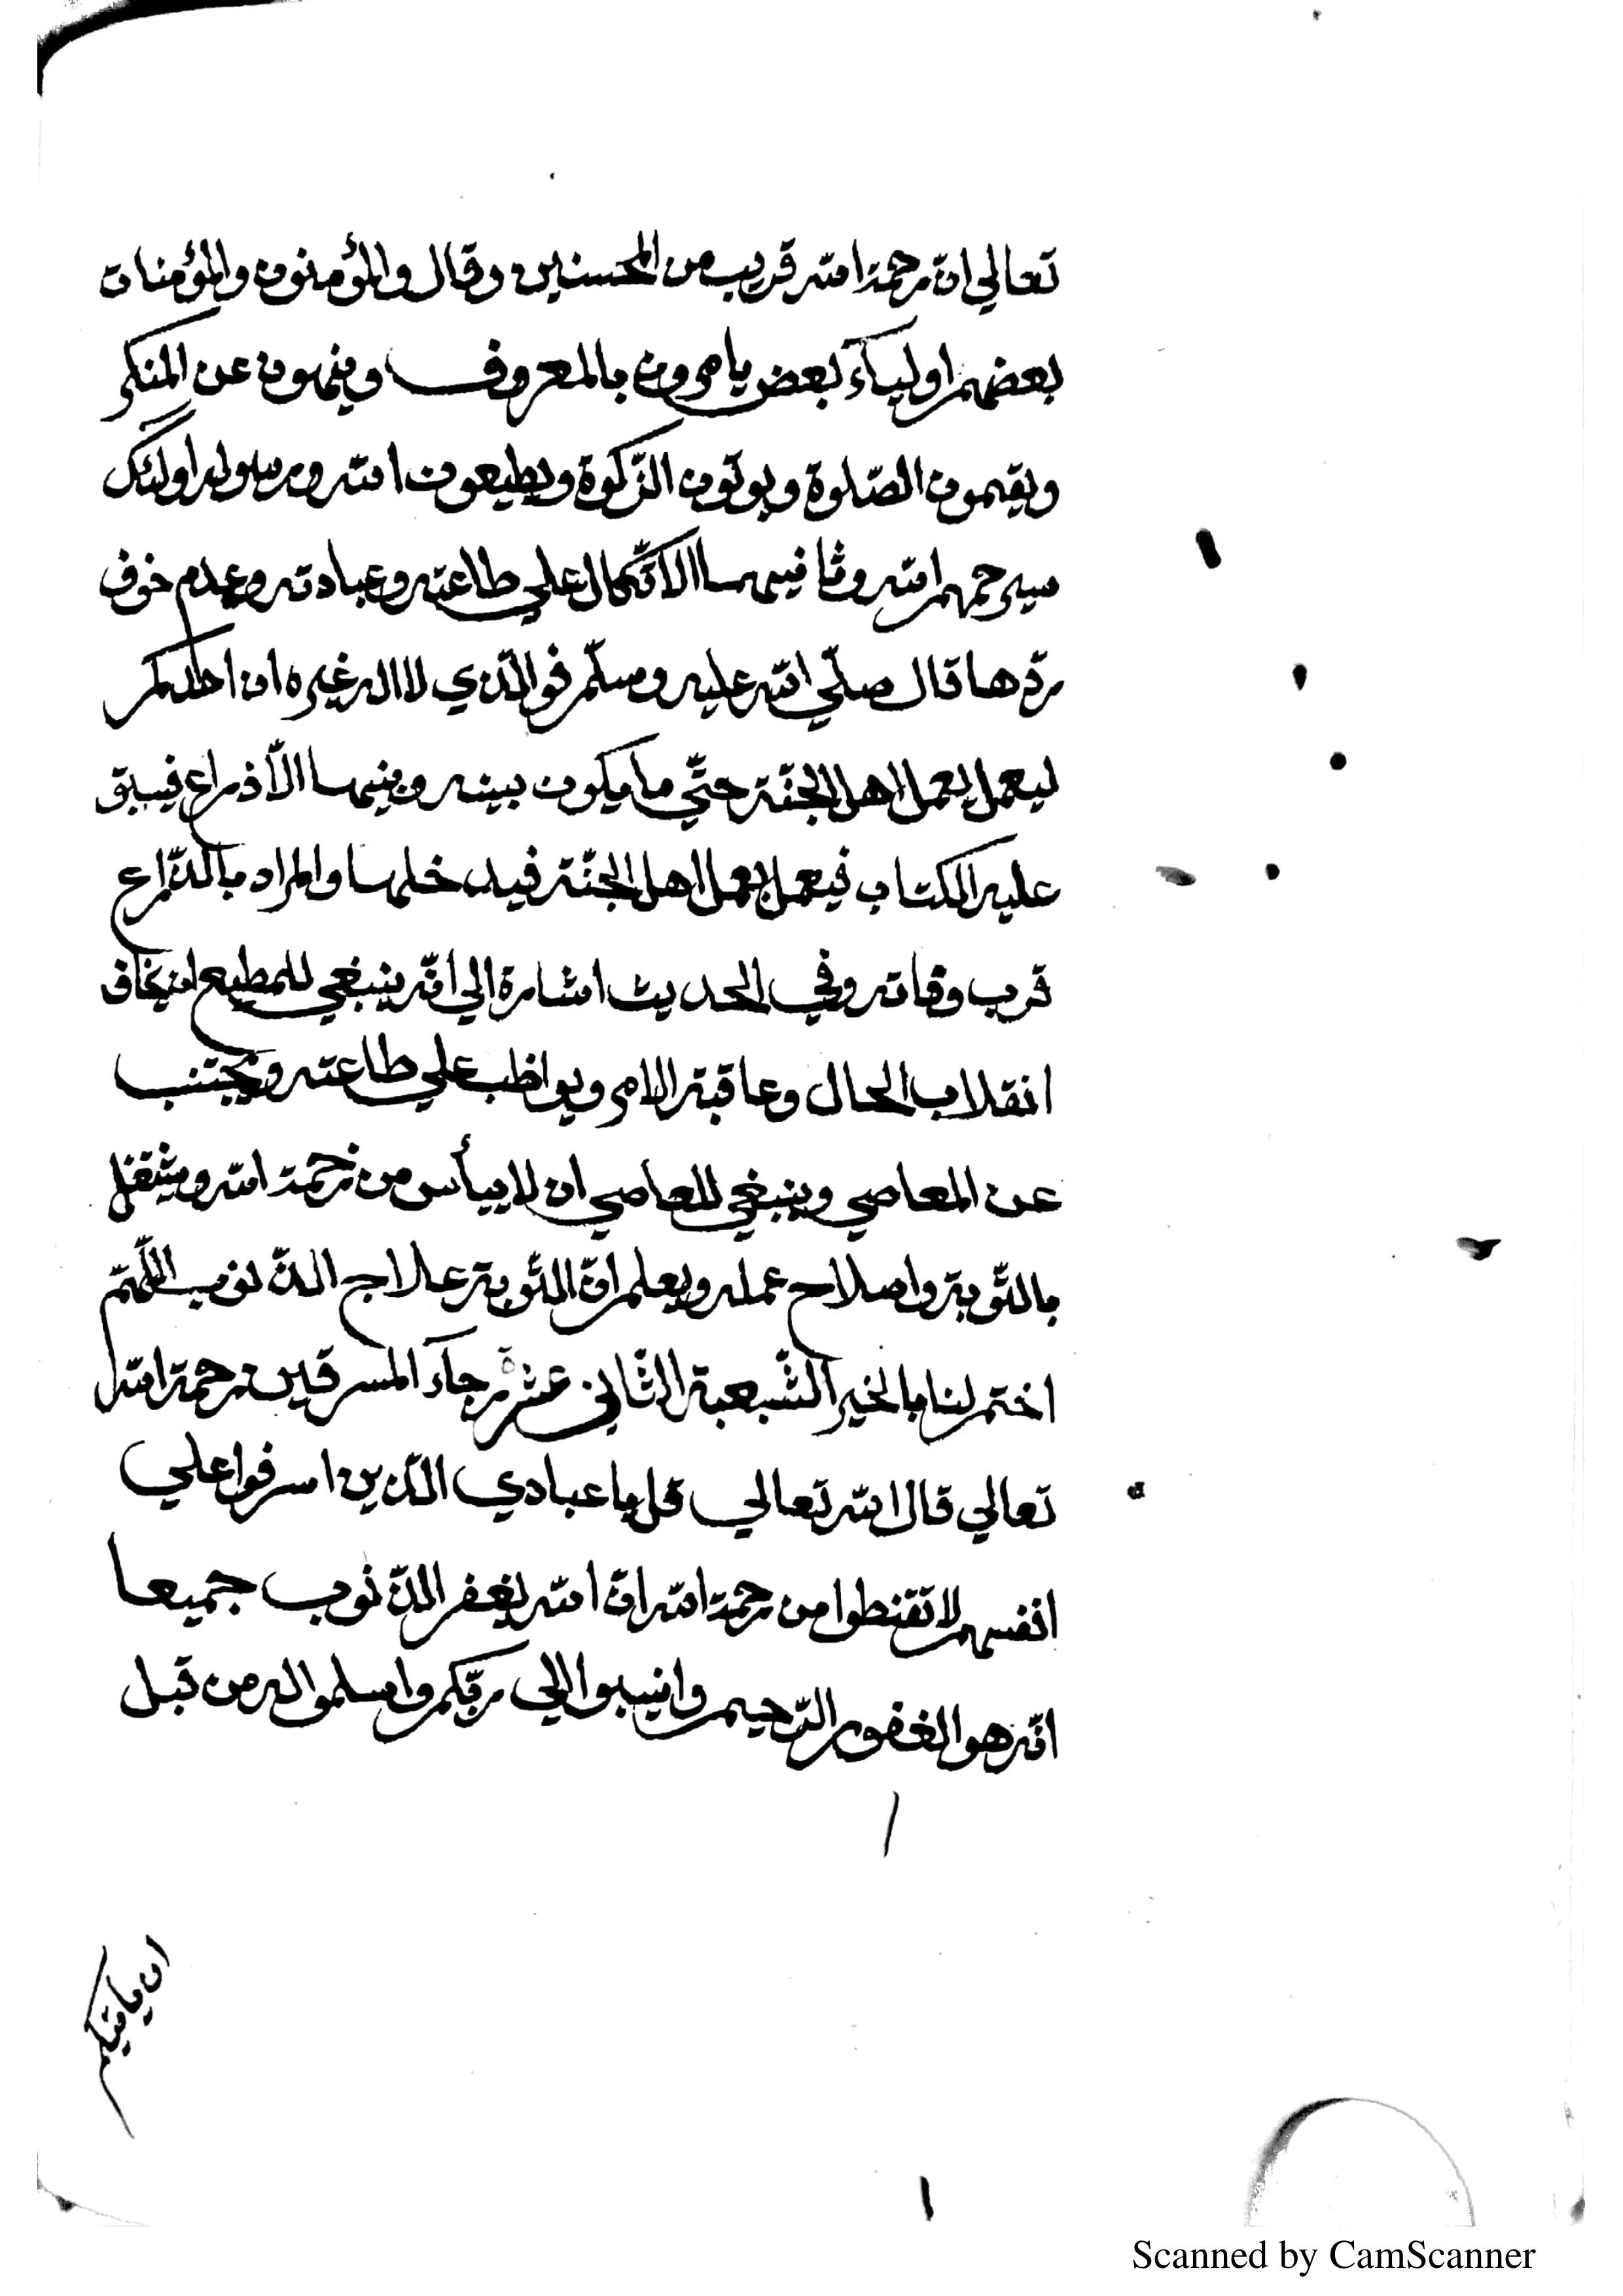 تعالي انّ رحمة الله قريب من المحسنين وقال والمؤمنون والمؤمنات
بعضهم اوليآء بعض يامرون بالمعروف وينهون عن المنكر
ويقيمون الصّلوة ويوتون الزّكوة ويطيعون الله ورسوله اولئك
سيرحمهم الله وثانيهما الاتّكال علي طاعته وعبادته وعدم خوف
ردّها قال صلّي الله عليه وسلّم فوالّذي لا اله غيره ان احدكم
ليعمل بعمل اهل الجنّة حتّي ما يكون بينه وبينها الاّ ذراع فيسبق
عليه الكتاب فيعمل بعمل اهل الجنّة فيدخلها والمراد بالذّراع
قرب وفاته وفي الحديث اشارة الي انّه ينبغي للمطيع ان يخاف
انقلاب الحال وعاقبة الامر ويواظب علي طاعته ويجتنب
عن المعاصي وينبغي للعاصي ان لا ييأس من رحمة الله ويشتغل
بالتّوبة واصلاح عمله ويعلم انّ التّوبة علاج الذّنوب اللّهمّ
اختم لنا بالخير الشّعبة الثّاني عشرة رجآء المسرفين رحمة الله
تعالي قال الله تعالي قل يا عبادي الّذين اسرفوا علي
انفسهم لا تقنطوا من رحمة الله انّ الله يغفر الذّنوب جميعا
انّه هو الغفور الرّحيم وانيبوا الي ربّكم واسلموا له من قبل
ان ياتيكم
Scanned by CamScanner